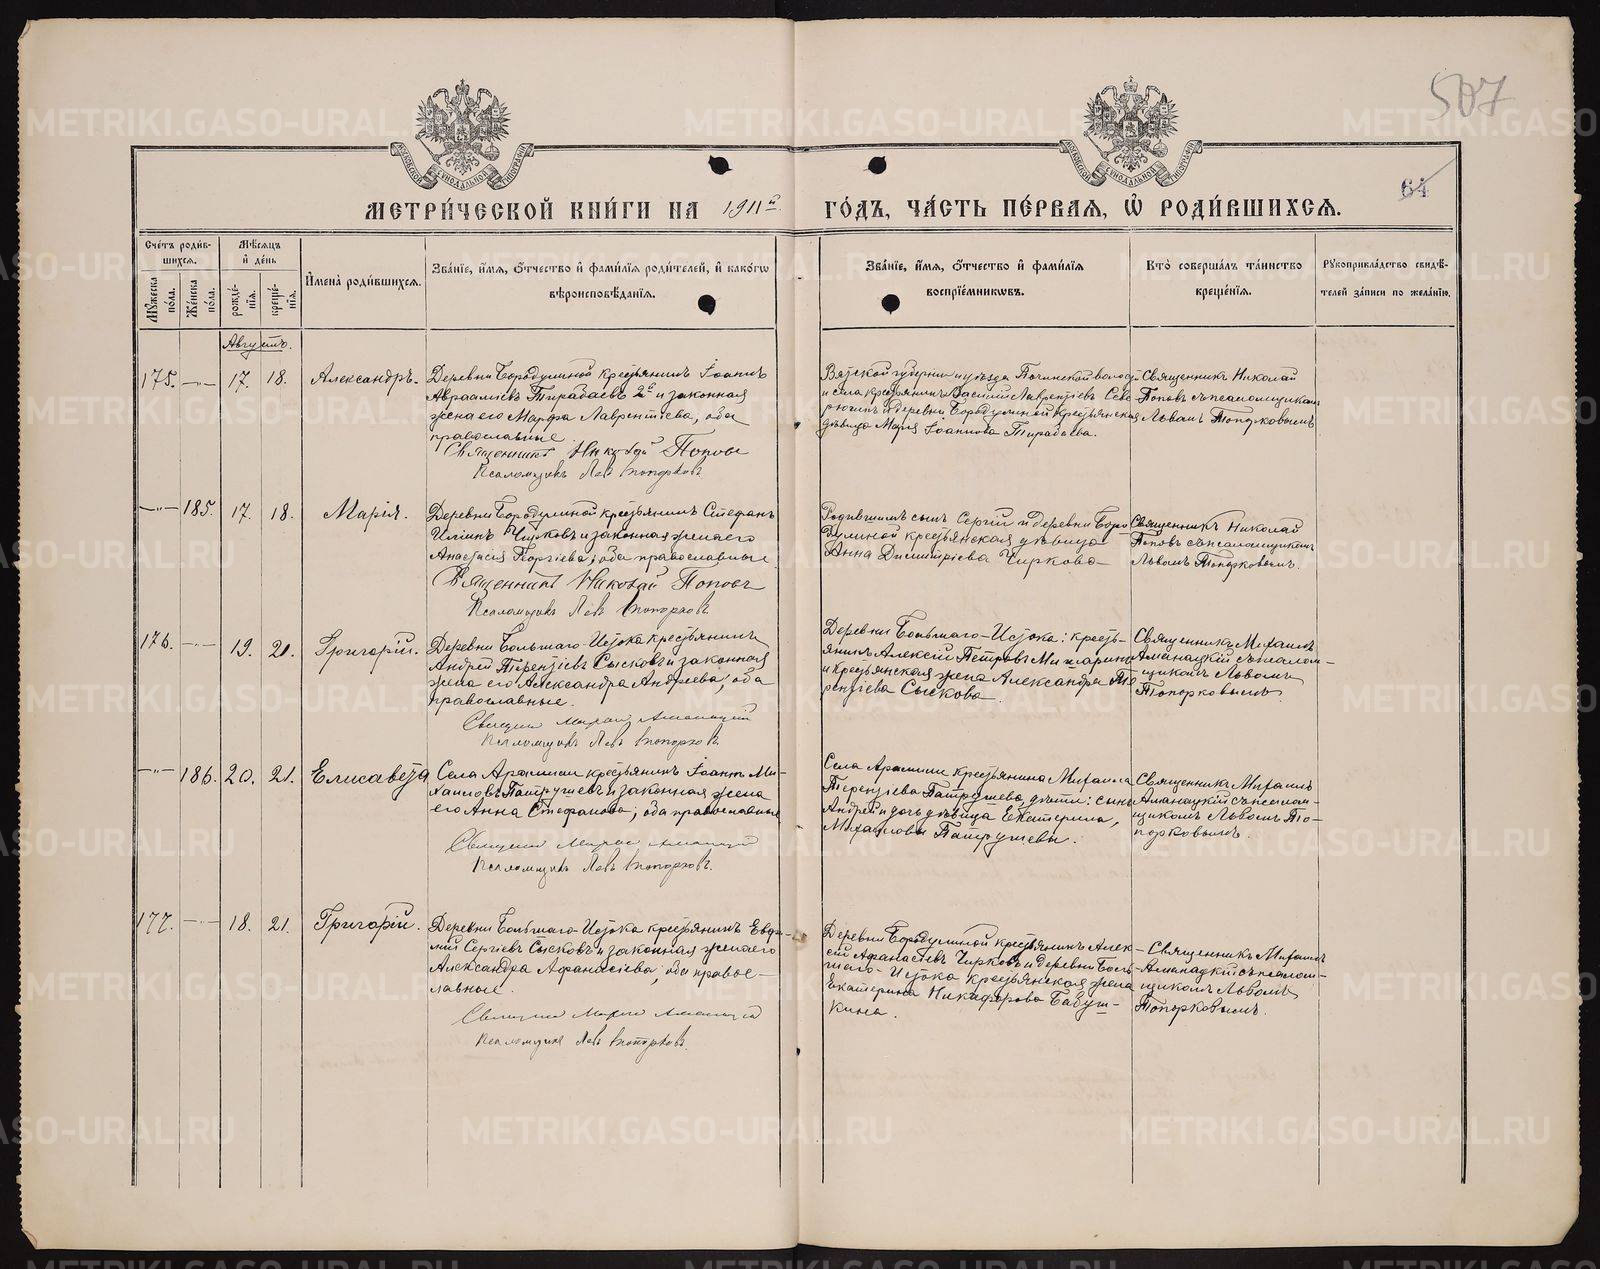 507
64
МЕТРИ́ЧЕСКОЙ КНИ́ГИ НА 1911й ГО́ДЪ, ЧА́СТЬ ПЕ́РВАЯ, Ѽ РОДИ́ВШИХСЯ.
Сче́тъ роди́в-
шихся.
Мѣ́сяцъ
и҆ де́нь
Мꙋ́жеска
по́ла.
Же́нска
по́ла.
рожде́-
нїѧ.
креще́-
нїѧ.
И҆мена̀ роди́вшихся.
Зва́нїе, и҆́мя, ѻ҆́тчество и҆ фами́лїя роди́телей, и҆ како́гѡ
вѣроисповѣ́данїя.
Зва́нїе, и҆́мя, ѻ҆́тчество и҆ фами́лїя
воспрїе́мникѡвъ.
Кто̀ соверша́лъ та́инство
креще́нїя.
Рꙋкоприкла́дство свидѣ́-
телей за́писи по жела́нїю.
Августъ.
175. —"— 17. 18. Александръ.
Деревни Бородулиной крестьянинъ Іоаннъ
Авраамiевъ Тирабаевъ 2й и законная
жена его Марѳа Лаврентіева, оба
православные
Священникъ Николай Поповъ
Псаломщикъ Левъ Топорковъ
Вятской губерніи и уѣзда Починской волости
и села крестьянинъ Василій Лаврентіевъ
и деревни Бородулиной крестьянская
дѣвица Марія Іоаннова Тирабаева.
Священникъ Николай
Поповъ съ псаломщикомъ
Львомъ Топорковымъ
—"— 185. 17. 18. Марія.
Деревни Бородулиной крестьянинъ Стефанъ
Иліинъ Чирковъ и законная жена его
Анастасія Георгіева, оба православные
Священникъ Николай Поповъ
Псаломщикъ Левъ Топорковъ
Родившимъ сынъ Сергій и деревни Боро-
дулиной крестьянская дѣвица
Анна Димитріева Чиркова
Священникъ Николай
Поповъ съ псаломщикомъ
Львомъ Топорковымъ.
176. —"— 19. 21. Григорій.
Деревни Большаго-Истока крестьянинъ
Андрей Терентіевъ Сысковъ и законная
жена его Александра Андреева, оба
православные.
Священникъ Михаилъ Аманацкій
Псаломщикъ Левъ Топорковъ.
Деревни Большаго-Истока: кресть-
янинъ Алексій Петровъ
и крестьянская жена Александра Те-
рентіева Сыскова
Священникъ Михаилъ
Аманацкій съ псалом-
щикомъ Львомъ
Топорковымъ
—"— 186. 20. 21. Елисавета
Села Арамили крестьянинъ Іоаннъ Ми-
хаиловъ Патрушевъ и законная жена
его Анна Стефанова, оба православные
Священникъ Михаилъ Аманацкій
Псаломщикъ Левъ Топорковъ.
Села Арамили крестьянина Михаила
Терентіева Патрушева дѣти: сынъ
Андрей и дочь дѣвица Екатерина,
Михаиловы Патрушевы.
Священникъ Михаилъ
Аманацкій съ псалом-
щикомъ Львомъ То-
порковымъ.
177. —"— 18. 21. Григорій.
Деревни Большаго-Истока крестьянинъ Евѳи-
мій Сергіевъ Сысковъ и законная жена его
Александра Аѳанасіева, оба правос-
лавные.
Священникъ Михаилъ Аманацкій
Псаломщикъ Левъ Топорковъ.
Деревни Бородулиной крестьянинъ Алек-
сій Аѳанасіевъ Чирковъ и деревни Боль-
шаго-Истока крестьянская жена
Екатерина Никифорова Бабуш-
кина.
Священникъ Михаилъ
Аманацкій съ псалом-
щикомъ Львомъ
Топорковымъ.
METRIKI.GASO-URAL.RU